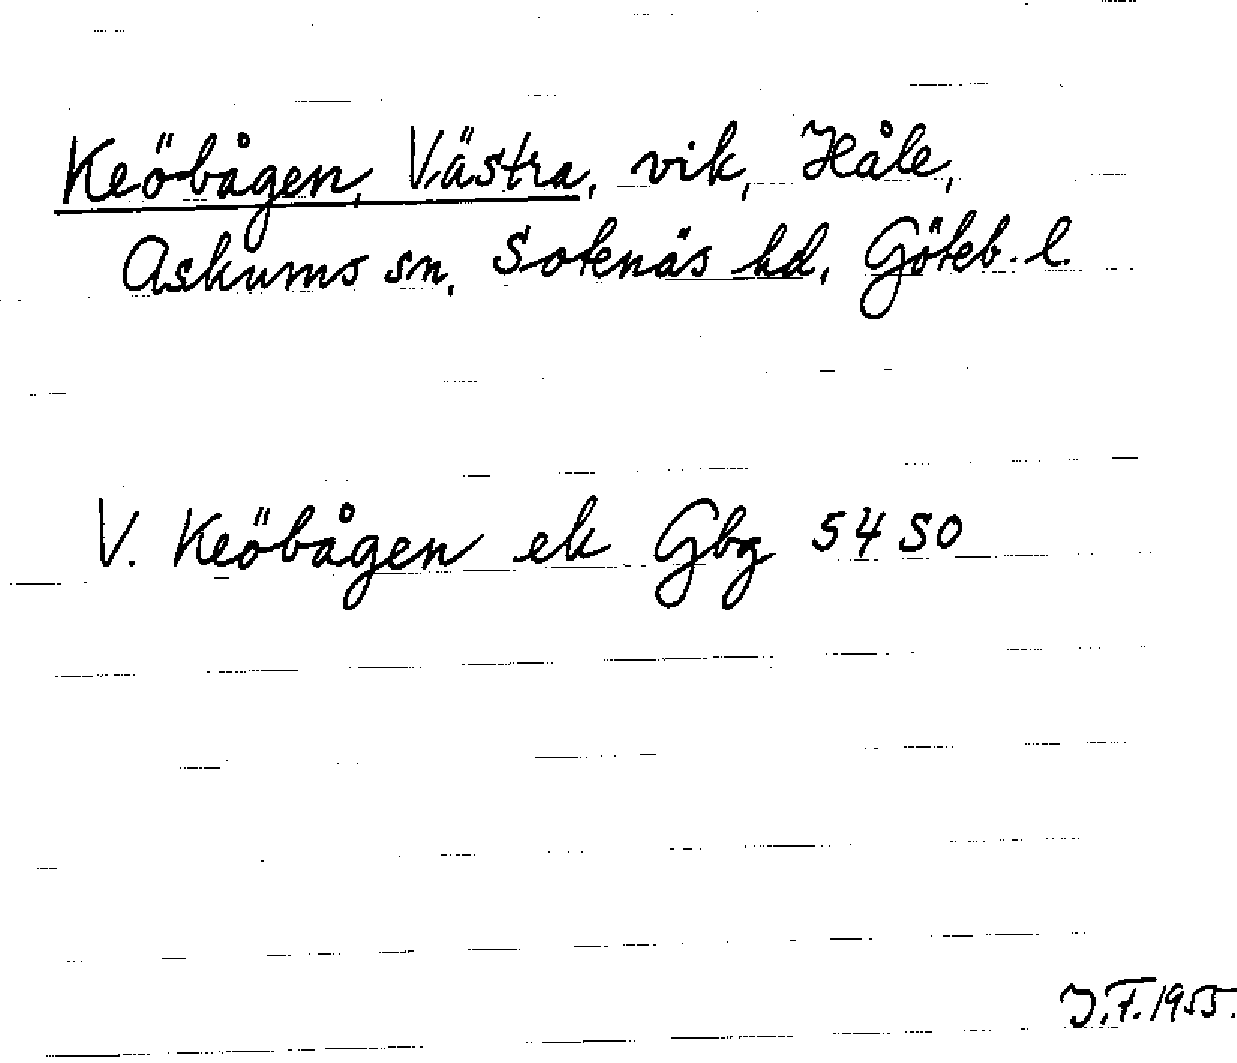 Keöbågen, Västra, vik, Håle,
Askums sn, Sotenäs hd, Göteb. l.
V. Keöbågen ek Gbg 5450
J.F. 1955.